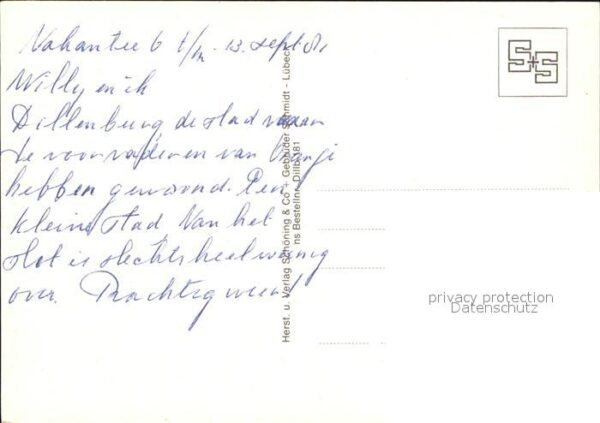 Vakantie 6 t/m 13 sept. 81
Willy en ik
Dillenburg de stad waar
de voorvaderen van Oranje
hebben gewoond. Een
kleine stad. Van het
slot is slechts heel weinig
over. Prachtig weer!
Herst. u. Verlag Schöning & Co + Gebrüder Schmidt - Lübeck
ns Bestellnr. Dillb 181
S+S
privacy protection
Datenschutz